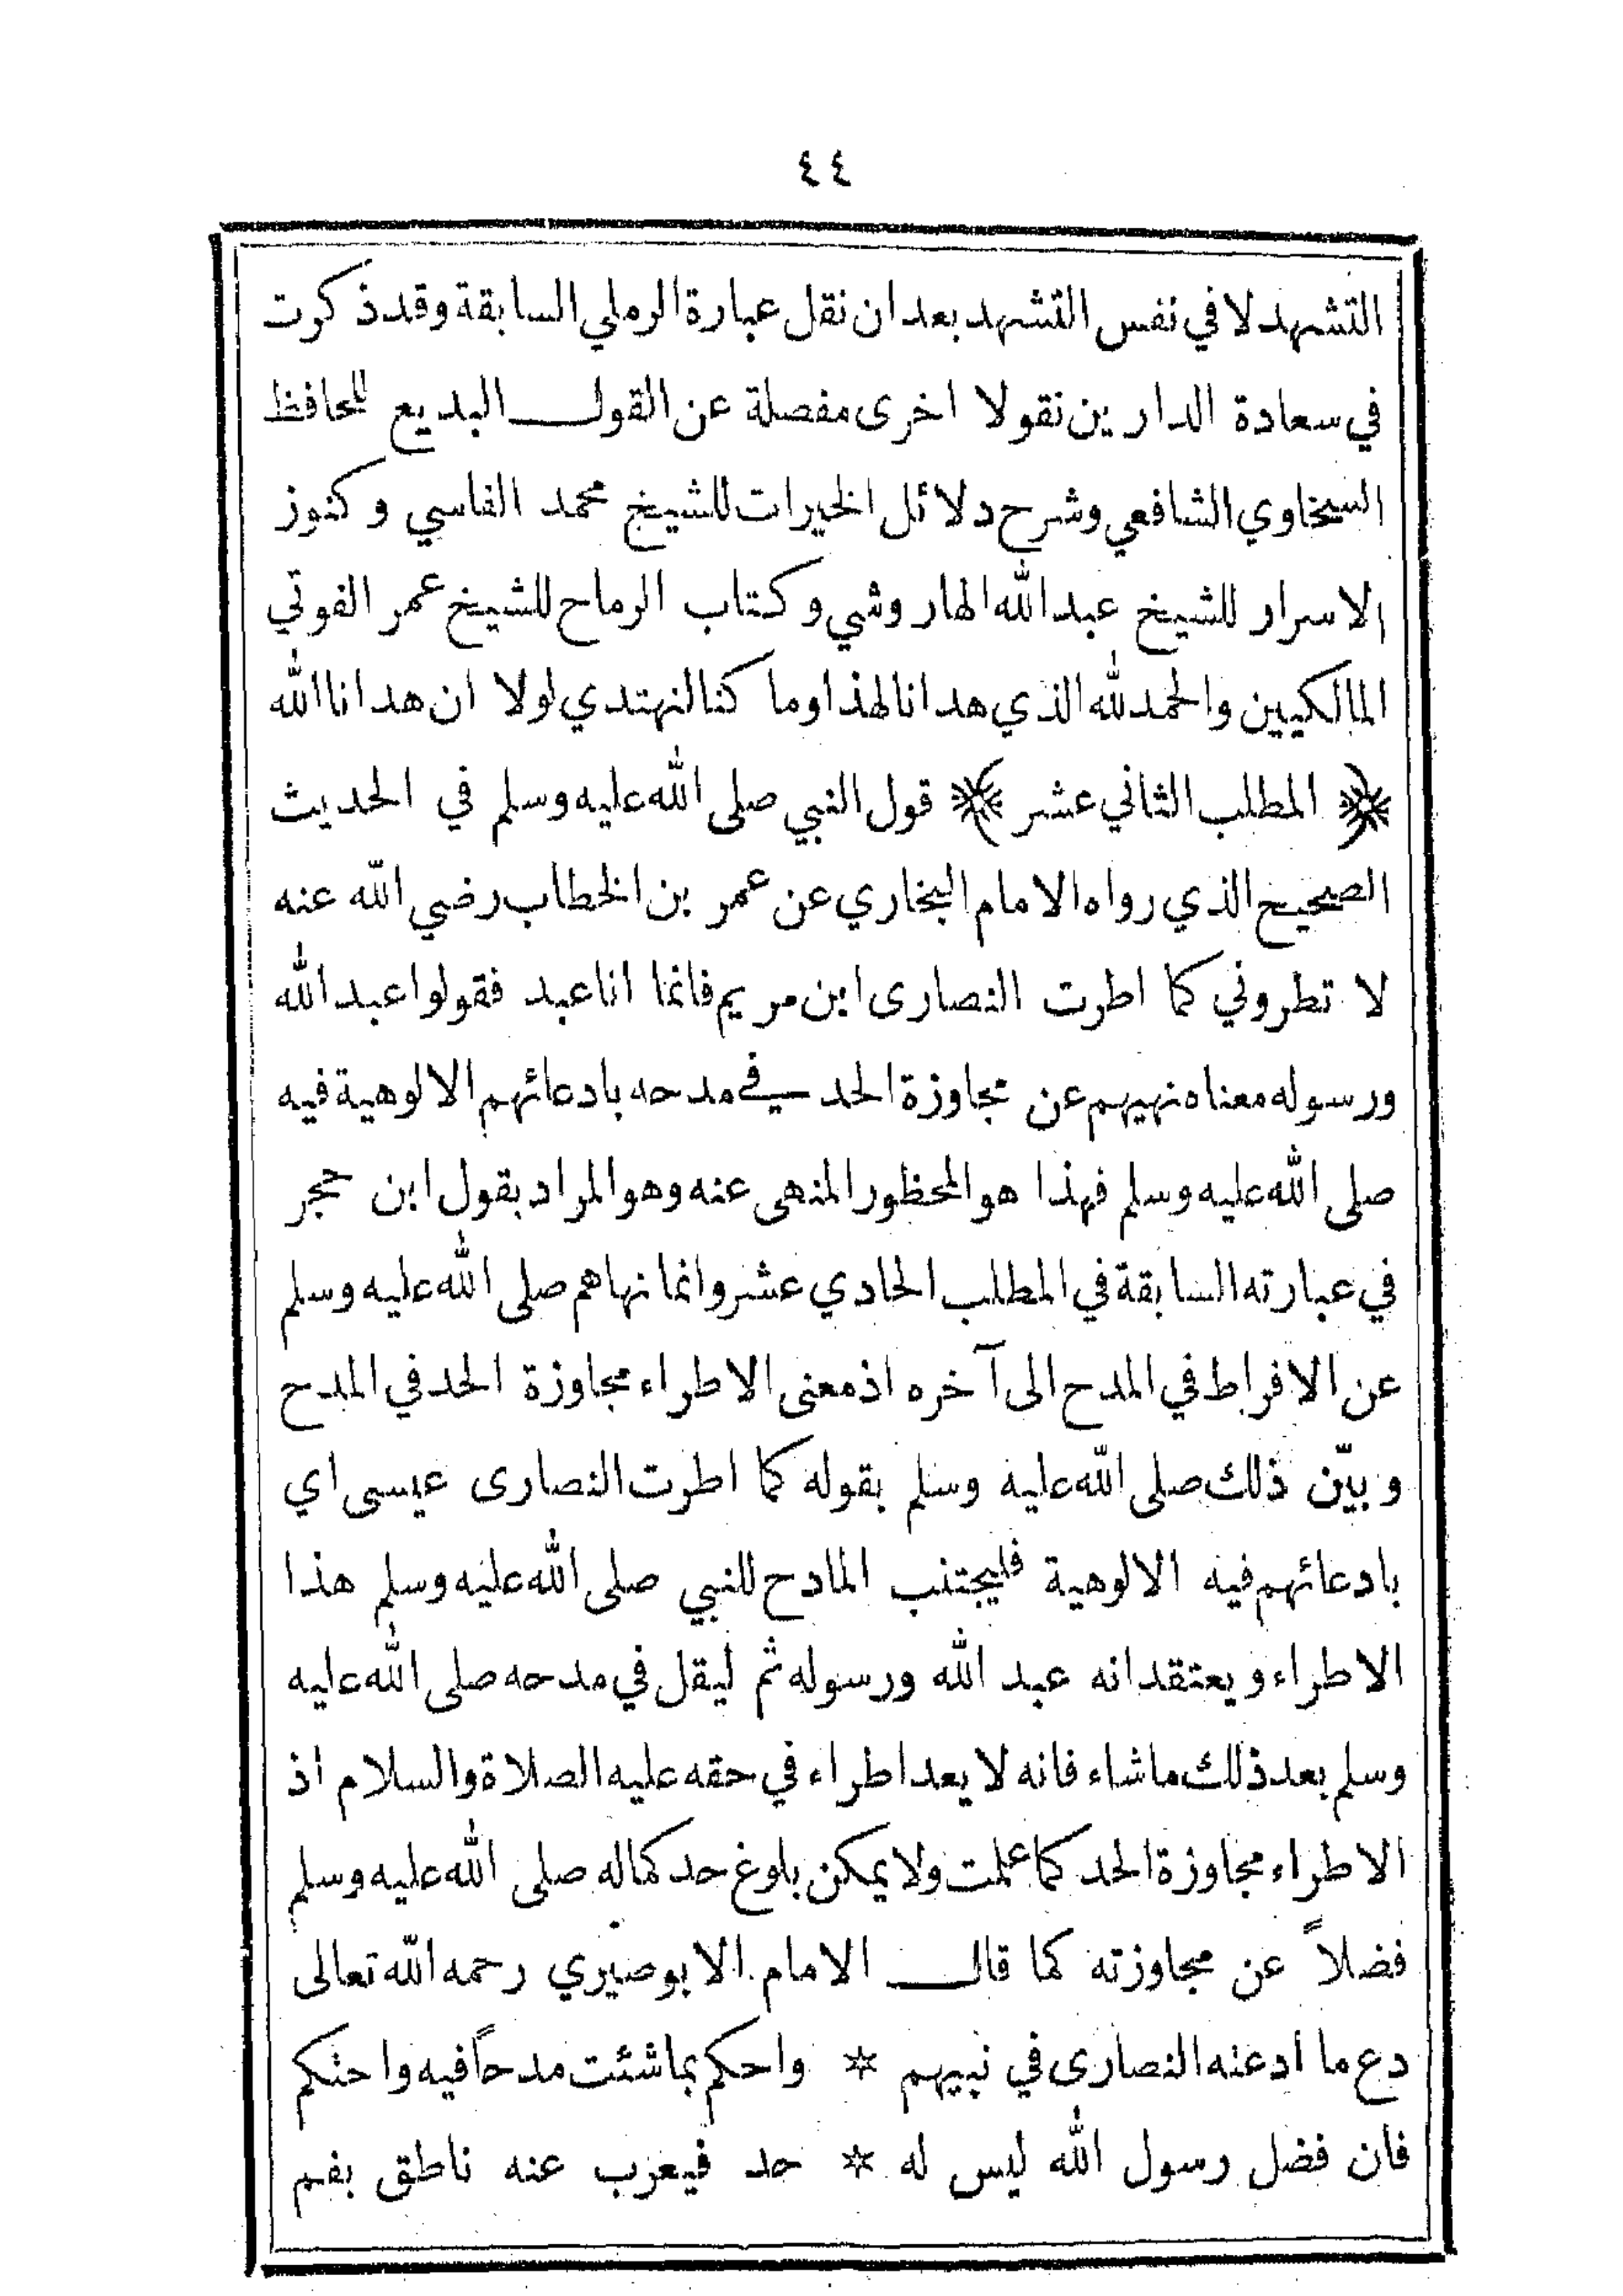 ٤٤
التشهد لا في نفس التشهد بعد ان نقل عبارة الرملي السابقة وقد ذكرت
في سعادة الدارين نقولا اخرى مفصلة عن القول البديع للحافظ
السخاوي الشافعي وشرح دلائل الخيرات للشيخ محمد الفاسي وكنوز
الاسرار للشيخ عبد الله الهاروشي وكتاب الرماح للشيخ عمر الفوتي
المالكيين والحمد لله الذي هدانا لهذا وما كنا لنهتدي لولا ان هدانا الله
﴿ المطلب الثاني عشر ﴾ قول النبي صلى الله عليه وسلم في الحديث
الصحيح الذي رواه الامام البخاري عن عمر بن الخطاب رضي الله عنه
لا تطروني كما اطرت النصارى ابن مريم فانما انا عبد فقولوا عبد الله
ورسوله معناه نهيهم عن مجاوزة الحد في مدحه بادعائهم الالوهية فيه
صلى الله عليه وسلم فهذا هو المحظور المنهى عنه وهو المراد بقول ابن حجر
في عبارته السابقة في المطلب الحادي عشر وانما نهاهم صلى الله عليه وسلم
عن الافراط في المدح الى آخره اذ معنى الاطراء مجاوزة الحد في المدح
وبيّن ذلك صلى الله عليه وسلم بقوله كما اطرت النصارى عيسى اي
بادعائهم فيه الالوهية فليجتنب المادح للنبي صلى الله عليه وسلم هذا
الاطراء ويعتقد انه عبد الله ورسوله ثم ليقل في مدحه صلى الله عليه
وسلم بعد ذلك ما شاء فانه لا يعد اطراء في حقه عليه الصلاة والسلام اذ
الاطراء مجاوزة الحد كما علمت ولا يمكن بلوغ حد كماله صلى الله عليه وسلم
فضلاً عن مجاوزته كما قال الامام الابوصيري رحمه الله تعالى
دع ما ادعته النصارى في نبيهم * واحكم بما شئت مدحاً فيه واحتكم
فان فضل رسول الله ليس له * حد فيعرب عنه ناطق بفم